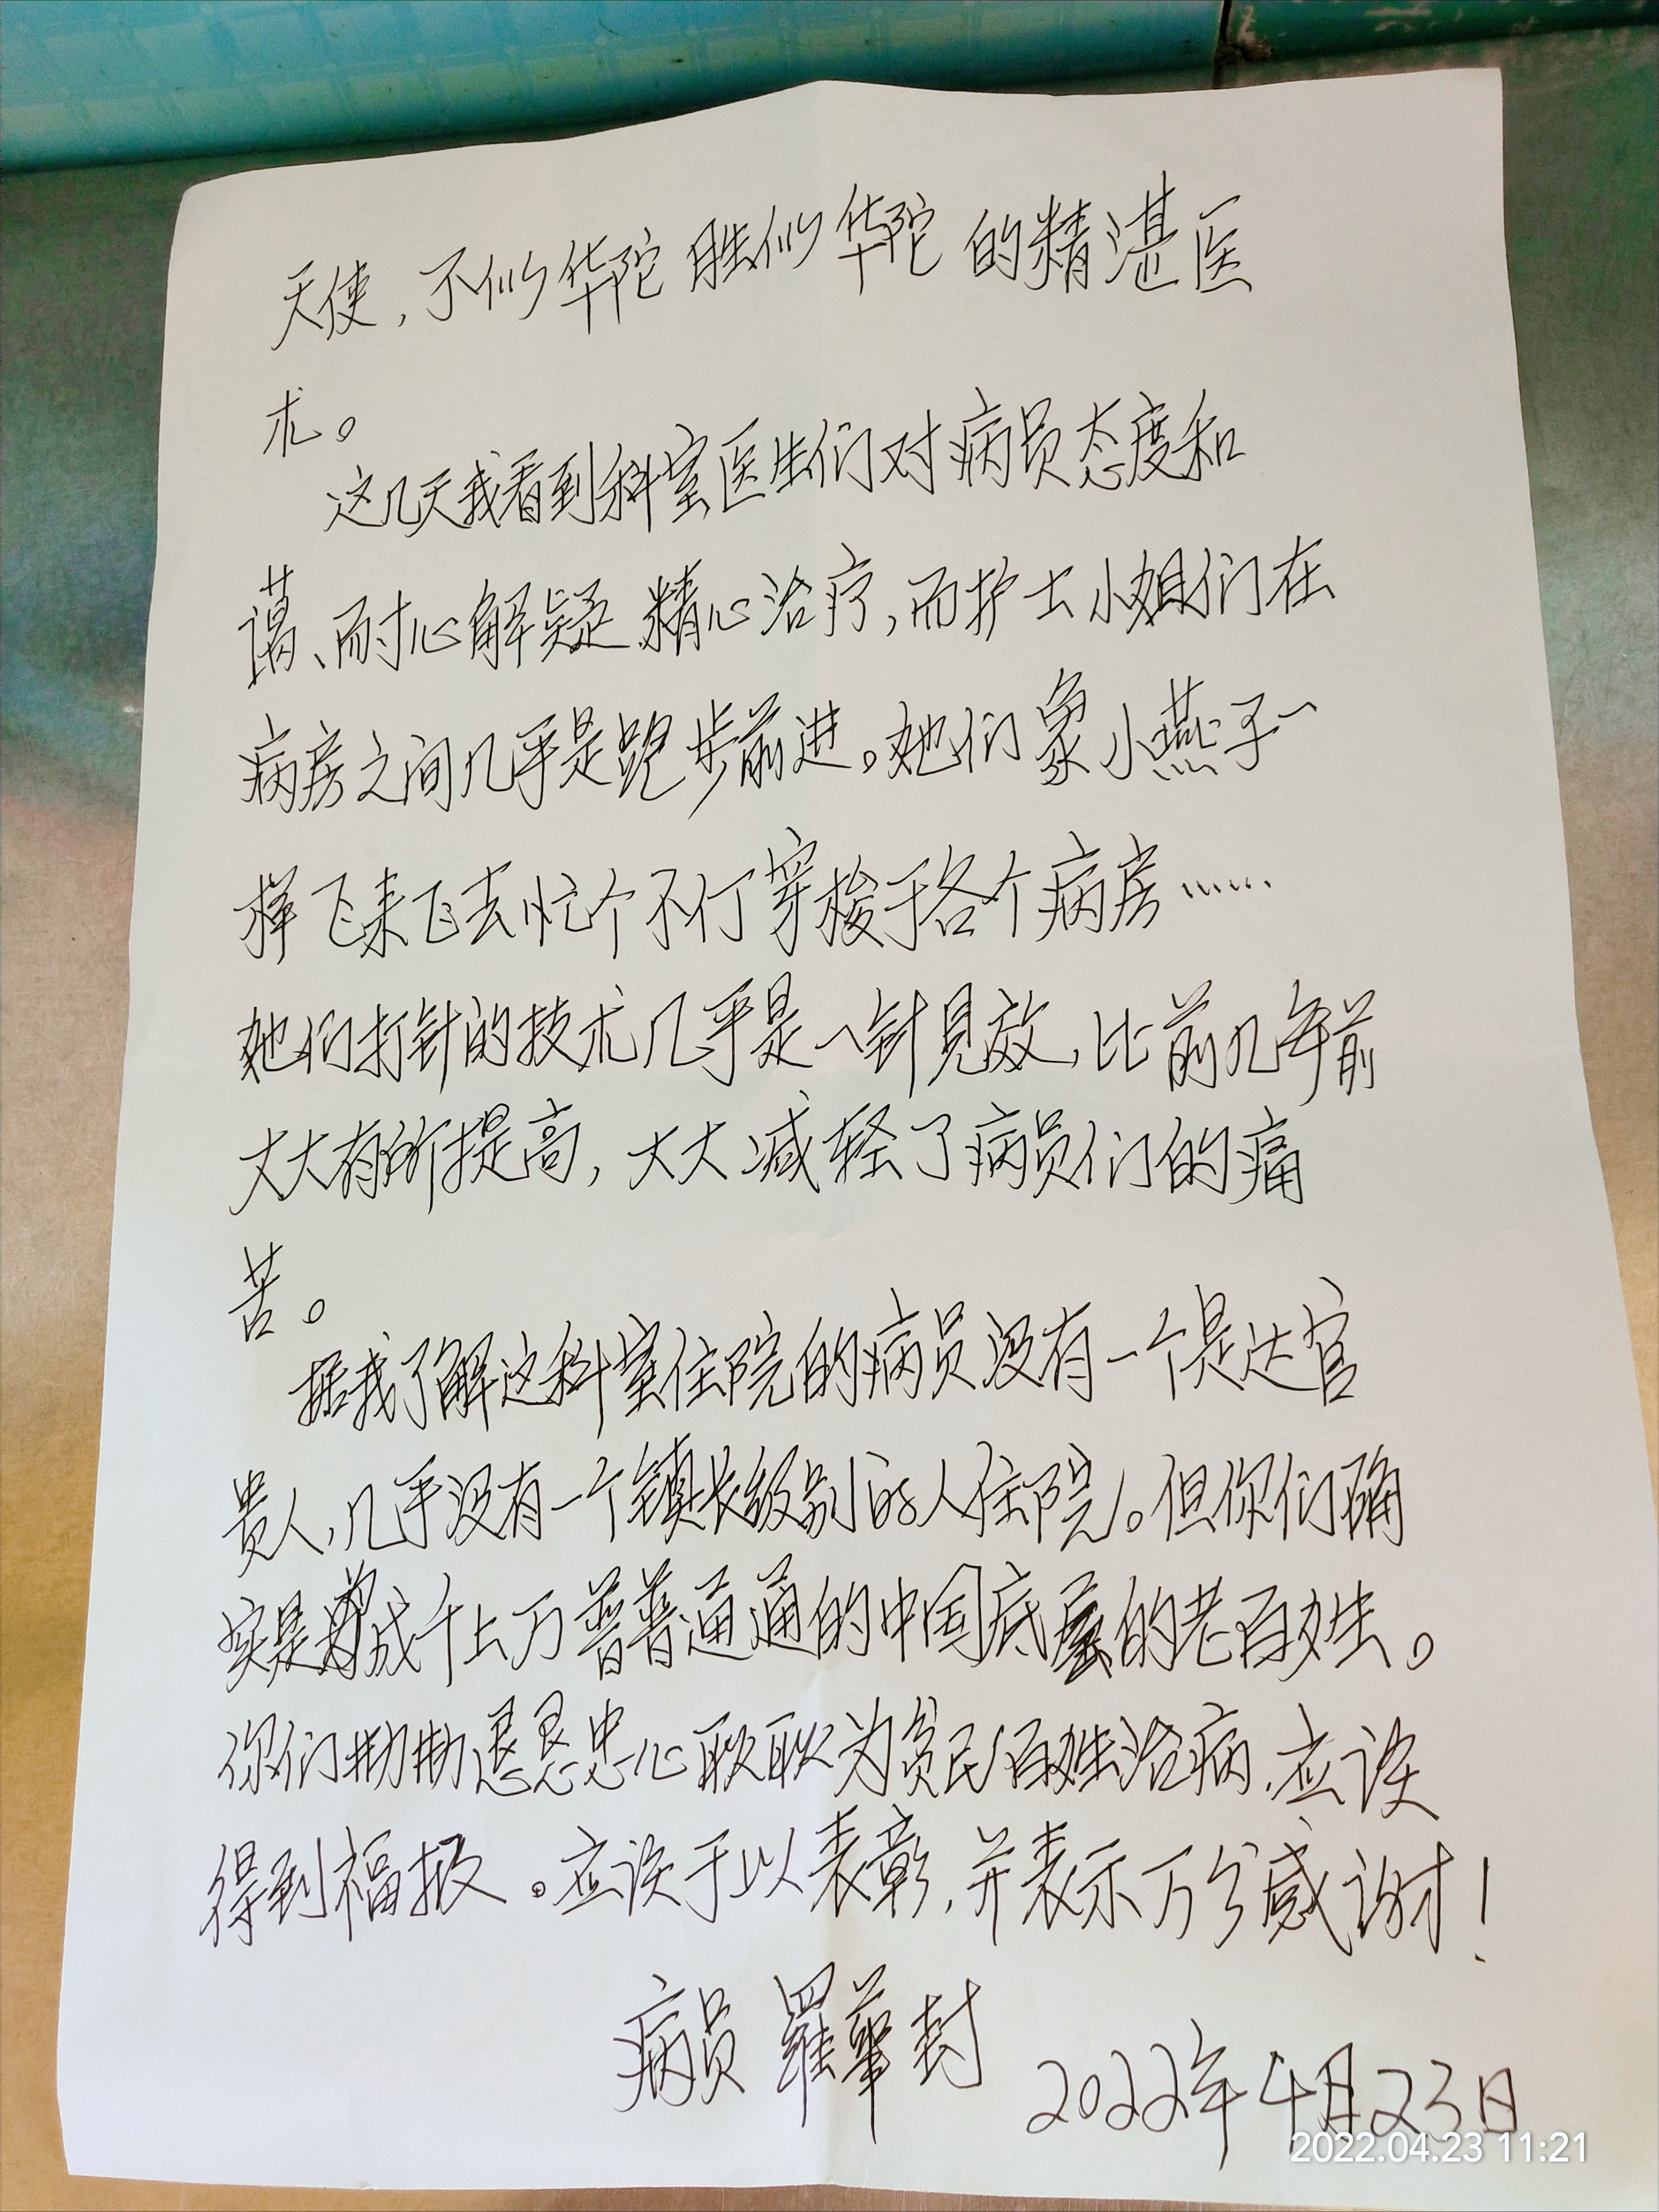 天使，不似华陀胜似华陀的精湛医
术。
这几天我看到科室医生们对病员态度和
蔼、耐心解疑.精心治疗，而护士小姐们在
病房之间几乎是跑步前进。她们象小燕子一
样飞来飞去忙个不仃穿梭于各个病房……
她们打针的技术几乎是一针见效，比前几年前
大大有所提高，大大减轻了病员们的痛
苦。
据我了解这科室住院的病员没有一个是达官
贵人，几乎没有一个镇长级别的人住院。但你们确
实是为成千上万普普通通的中国底层的老百姓。
你们勤勤恳恳忠心耿耿为贫民百姓治病，应该
得到福报。应该于以表彰，并表示万分感谢！
病员 羅華封
2022年4月23日
2022.04.23 11:21